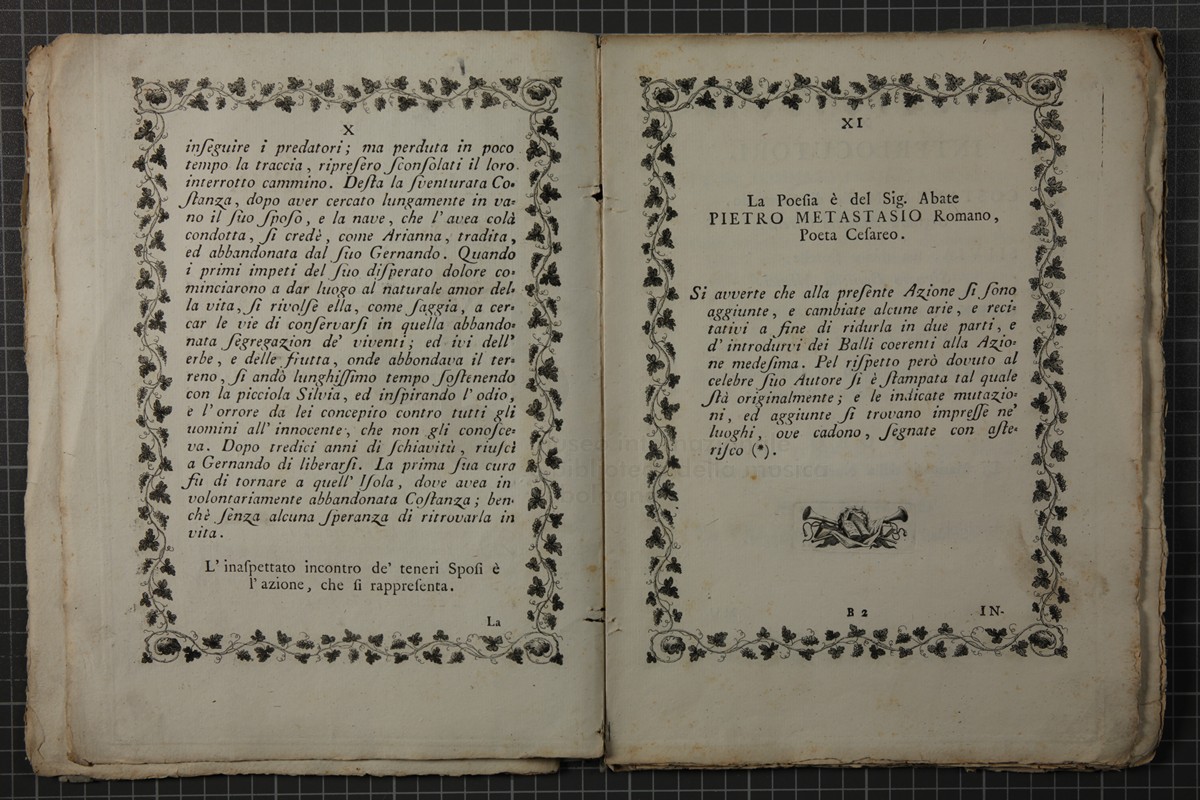 X
inſeguire i predatori; ma perduta in poco
tempo la traccia, ripreſero ſconſolati il loro
interrotto cammino. Deſta la ſventurata Co-
ſtanza, dopo aver cercato lungamente in va-
no il ſuo ſpoſo, e la nave, che l'avea colà
condotta, ſi credè, come Arianna, tradita,
ed abbandonata dal ſuo Gernando. Quando
i primi impeti del ſuo diſperato dolore co-
minciarono a dar luogo al naturale amor del-
la vita, ſi rivolſe ella, come ſaggia, a cer-
car le vie di conſervarſi in quella abbando-
nata ſegregazion de' viventi; ed ivi dell'
erbe, e delle frutta, onde abbondava il ter-
reno, ſi andò lunghiſſimo tempo ſoſtenendo
con la picciola Silvia, ed inſpirando l'odio,
e l'orrore da lei concepito contro tutti gli
uomini all'innocente, che non gli conoſce-
va. Dopo tredici anni di ſchiavitù, riuſcì
a Gernando di liberarſi. La prima ſua cura
fù di tornare a quell'Iſola, dove avea in
volontariamente abbandonata Coſtanza; ben-
chè ſenza alcuna ſperanza di ritrovarla in
vita.
L'inaſpettato incontro de' teneri Spoſi è
l'azione, che ſi rappreſenta.
La
XI
La Poeſia è del Sig. Abate
PIETRO METASTASIO Romano,
Poeta Ceſareo.
Si avverte che alla preſente Azione ſi ſono
aggiunte, e cambiate alcune arie, e reci-
tativi a fine di ridurla in due parti, e
d'introdurvi dei Balli coerenti alla Azio-
ne medeſima. Pel riſpetto però dovuto al
celebre ſuo Autore ſi è ſtampata tal quale
ſtà originalmente; e le indicate mutazio-
ni, ed aggiunte ſi trovano impreſſe ne'
luoghi, ove cadono, ſegnate con aſte-
riſco (*).
B 2
IN-
museo internazionale
biblioteca della musica
bologna